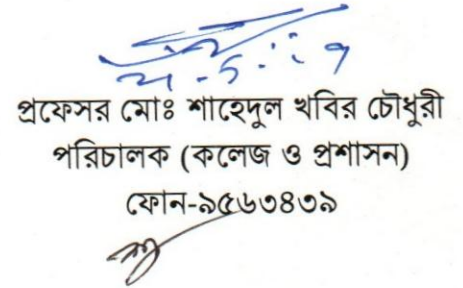 প্রফেসর মোঃ শাহেদুল খবির চৌধুরী
পরিচালক (কলেজ ও প্রশাসন)
ফোন-৯৫৬৩৪৩৯